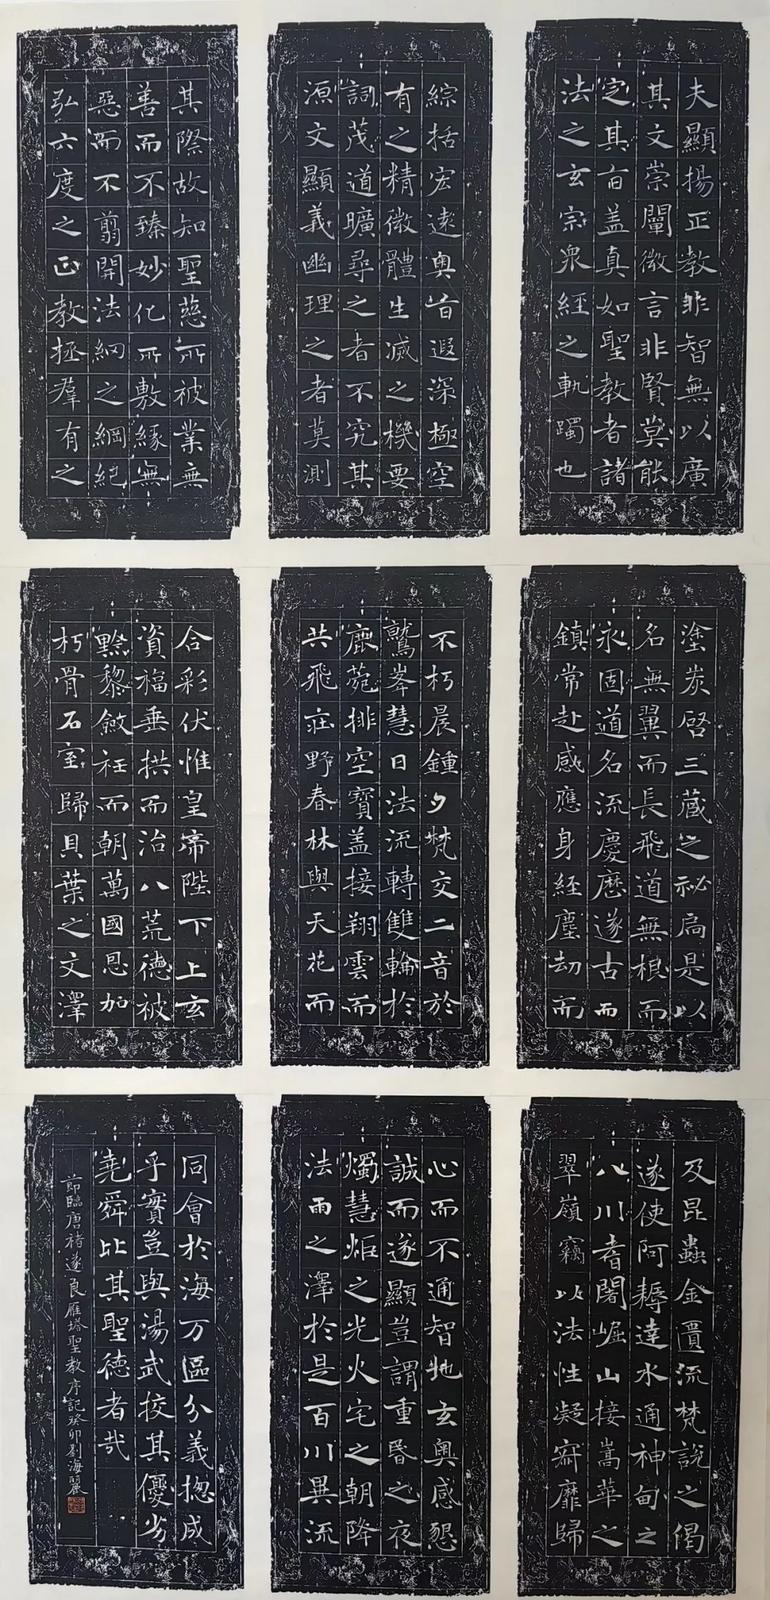 夫顯揚正教非智無以廣
其文崇闡微言非賢莫能
定其旨盖真如聖教者諸
法之玄宗衆經之軌躅也
綜括宏遠奧旨遐深極空
有之精微體生滅之機要
詞茂道曠尋之者不究其
源文顯義幽理之者莫測
其際故知聖慈所被業無
善而不臻妙化所敷緣無
惡而不翦開法網之綱紀
弘六度之正教拯羣有之
塗炭啓三藏之祕扃是以
名無翼而長飛道無根而
永固道名流慶歷遂古而
鎮常赴感應身經塵劫而
不朽晨鍾夕梵交二音於
鷲峯慧日法流轉雙輪於
鹿菀排空寶盖接翔雲而
共飛莊野春林與天花而
合彩伏惟皇帝陛下上玄
資福垂拱而治八荒德被
黔黎斂衽而朝萬國恩加
朽骨石室歸貝葉之文澤
及昆蟲金匱流梵說之偈
遂使阿耨達水通神甸之
八川耆闍崛山接嵩華之
翠嶺竊以法性凝寂靡歸
心而不通智地玄奧感懇
誠而遂顯豈謂重昏之夜
燭慧炬之光火宅之朝降
法雨之澤於是百川異流
同會於海万區分義揔成
乎實豈與湯武挍其優劣
堯舜比其聖德者哉
節臨唐褚遂良雁塔聖教序記癸卯劉海麗